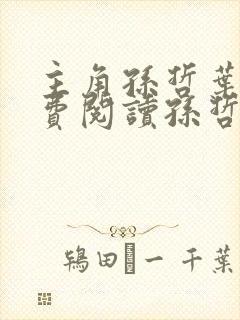 主角孫哲葉
費閱讀孫哲
鴇田 一 千葉